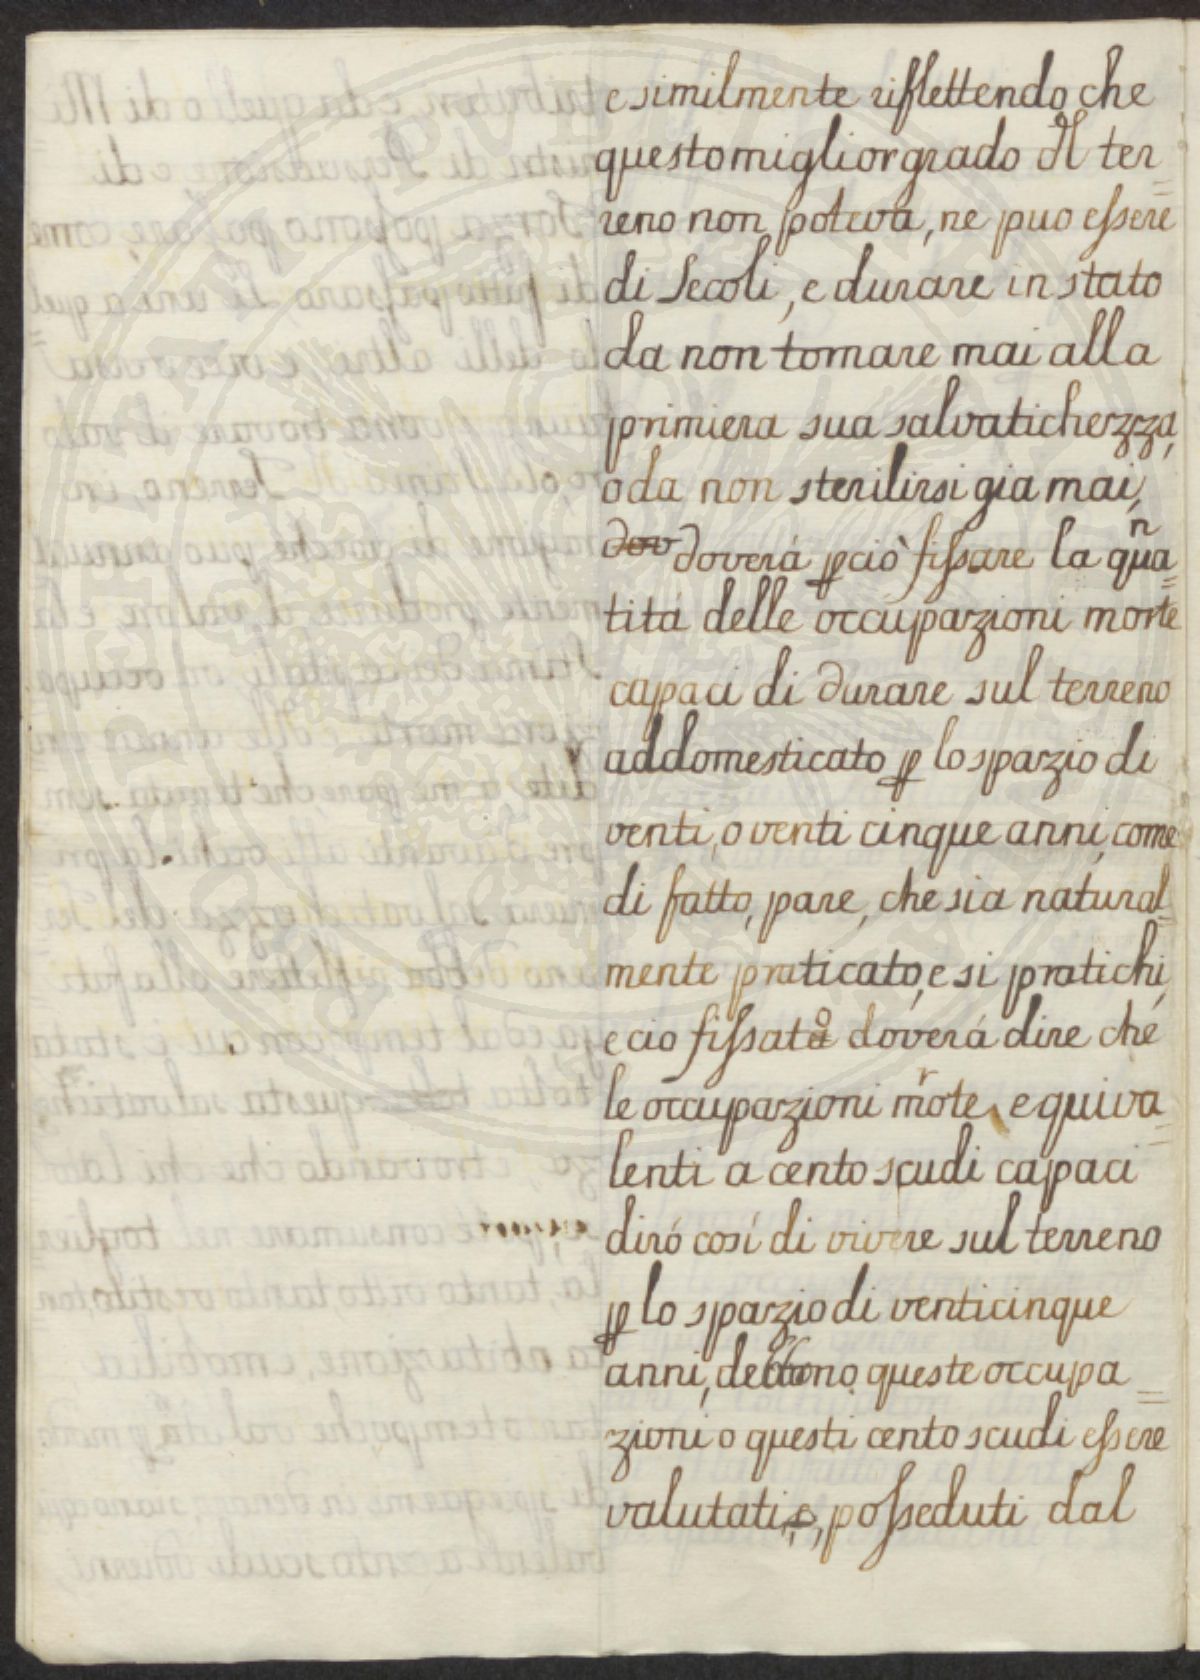 e similmente riflettendo che
questo miglior grado del ter=
reno non poteva, ne puo essere
di Secoli, e durare in stato
da non tornare mai alla
primiera sua salvatichezza,
o da non sterilirsi gia mai,
dov doverá pciò fissare la quan=
titá delle occupazioni morte
capaci di durare sul terreno
addomesticato p lo spazio di
venti, o venti cinque anni, come
di fatto, pare, che sia natural=
mente praticato, e si pratichi,
e cio fissato doverá dire che
le occupazioni morte, equiva=
lenti a cento scudi capaci
diró cosí di vivere sul terreno
p lo spazio di venticinque
anni, debbono queste occupa=
zioni o questi cento scudi essere
valutati, e, posseduti dal